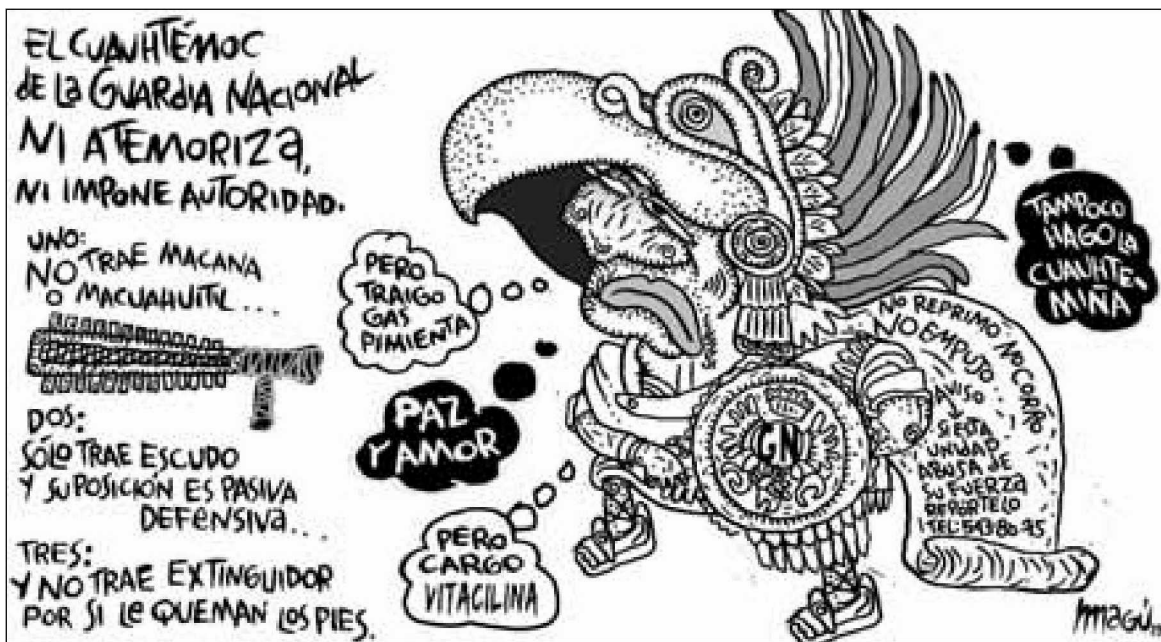 EL CUAUHTÉMOC
de la GUARdia NACIONAL
NI ATEMORIZa,
NI IMPONE AUTORIDAD.
UNO:
NO TRAE MACANA
O MACUAHUITL...
DOS:
SÓLO TRAE ESCUDO
Y SU POSICIÓN ES PASIVA
DEFENSIVA...
TRES:
Y NO TRAE EXTINGUIDOR
POR SI LE QUEMAN LOS PIES.
PERO
TRAIGO
GAS
PIMIENTA
PAZ
Y AMOR
PERO
CARGO
VITACILINA
GN
TAMPOCO
HAGO LA
CUAUHTE-
MIÑA
NO REPRIMO NO CORRO
NO EMPUJO...
AVISO
SI ESTA
UNIDAD
ABUSA DE
SU FUERZA
REPORTELO
TEL:
magú